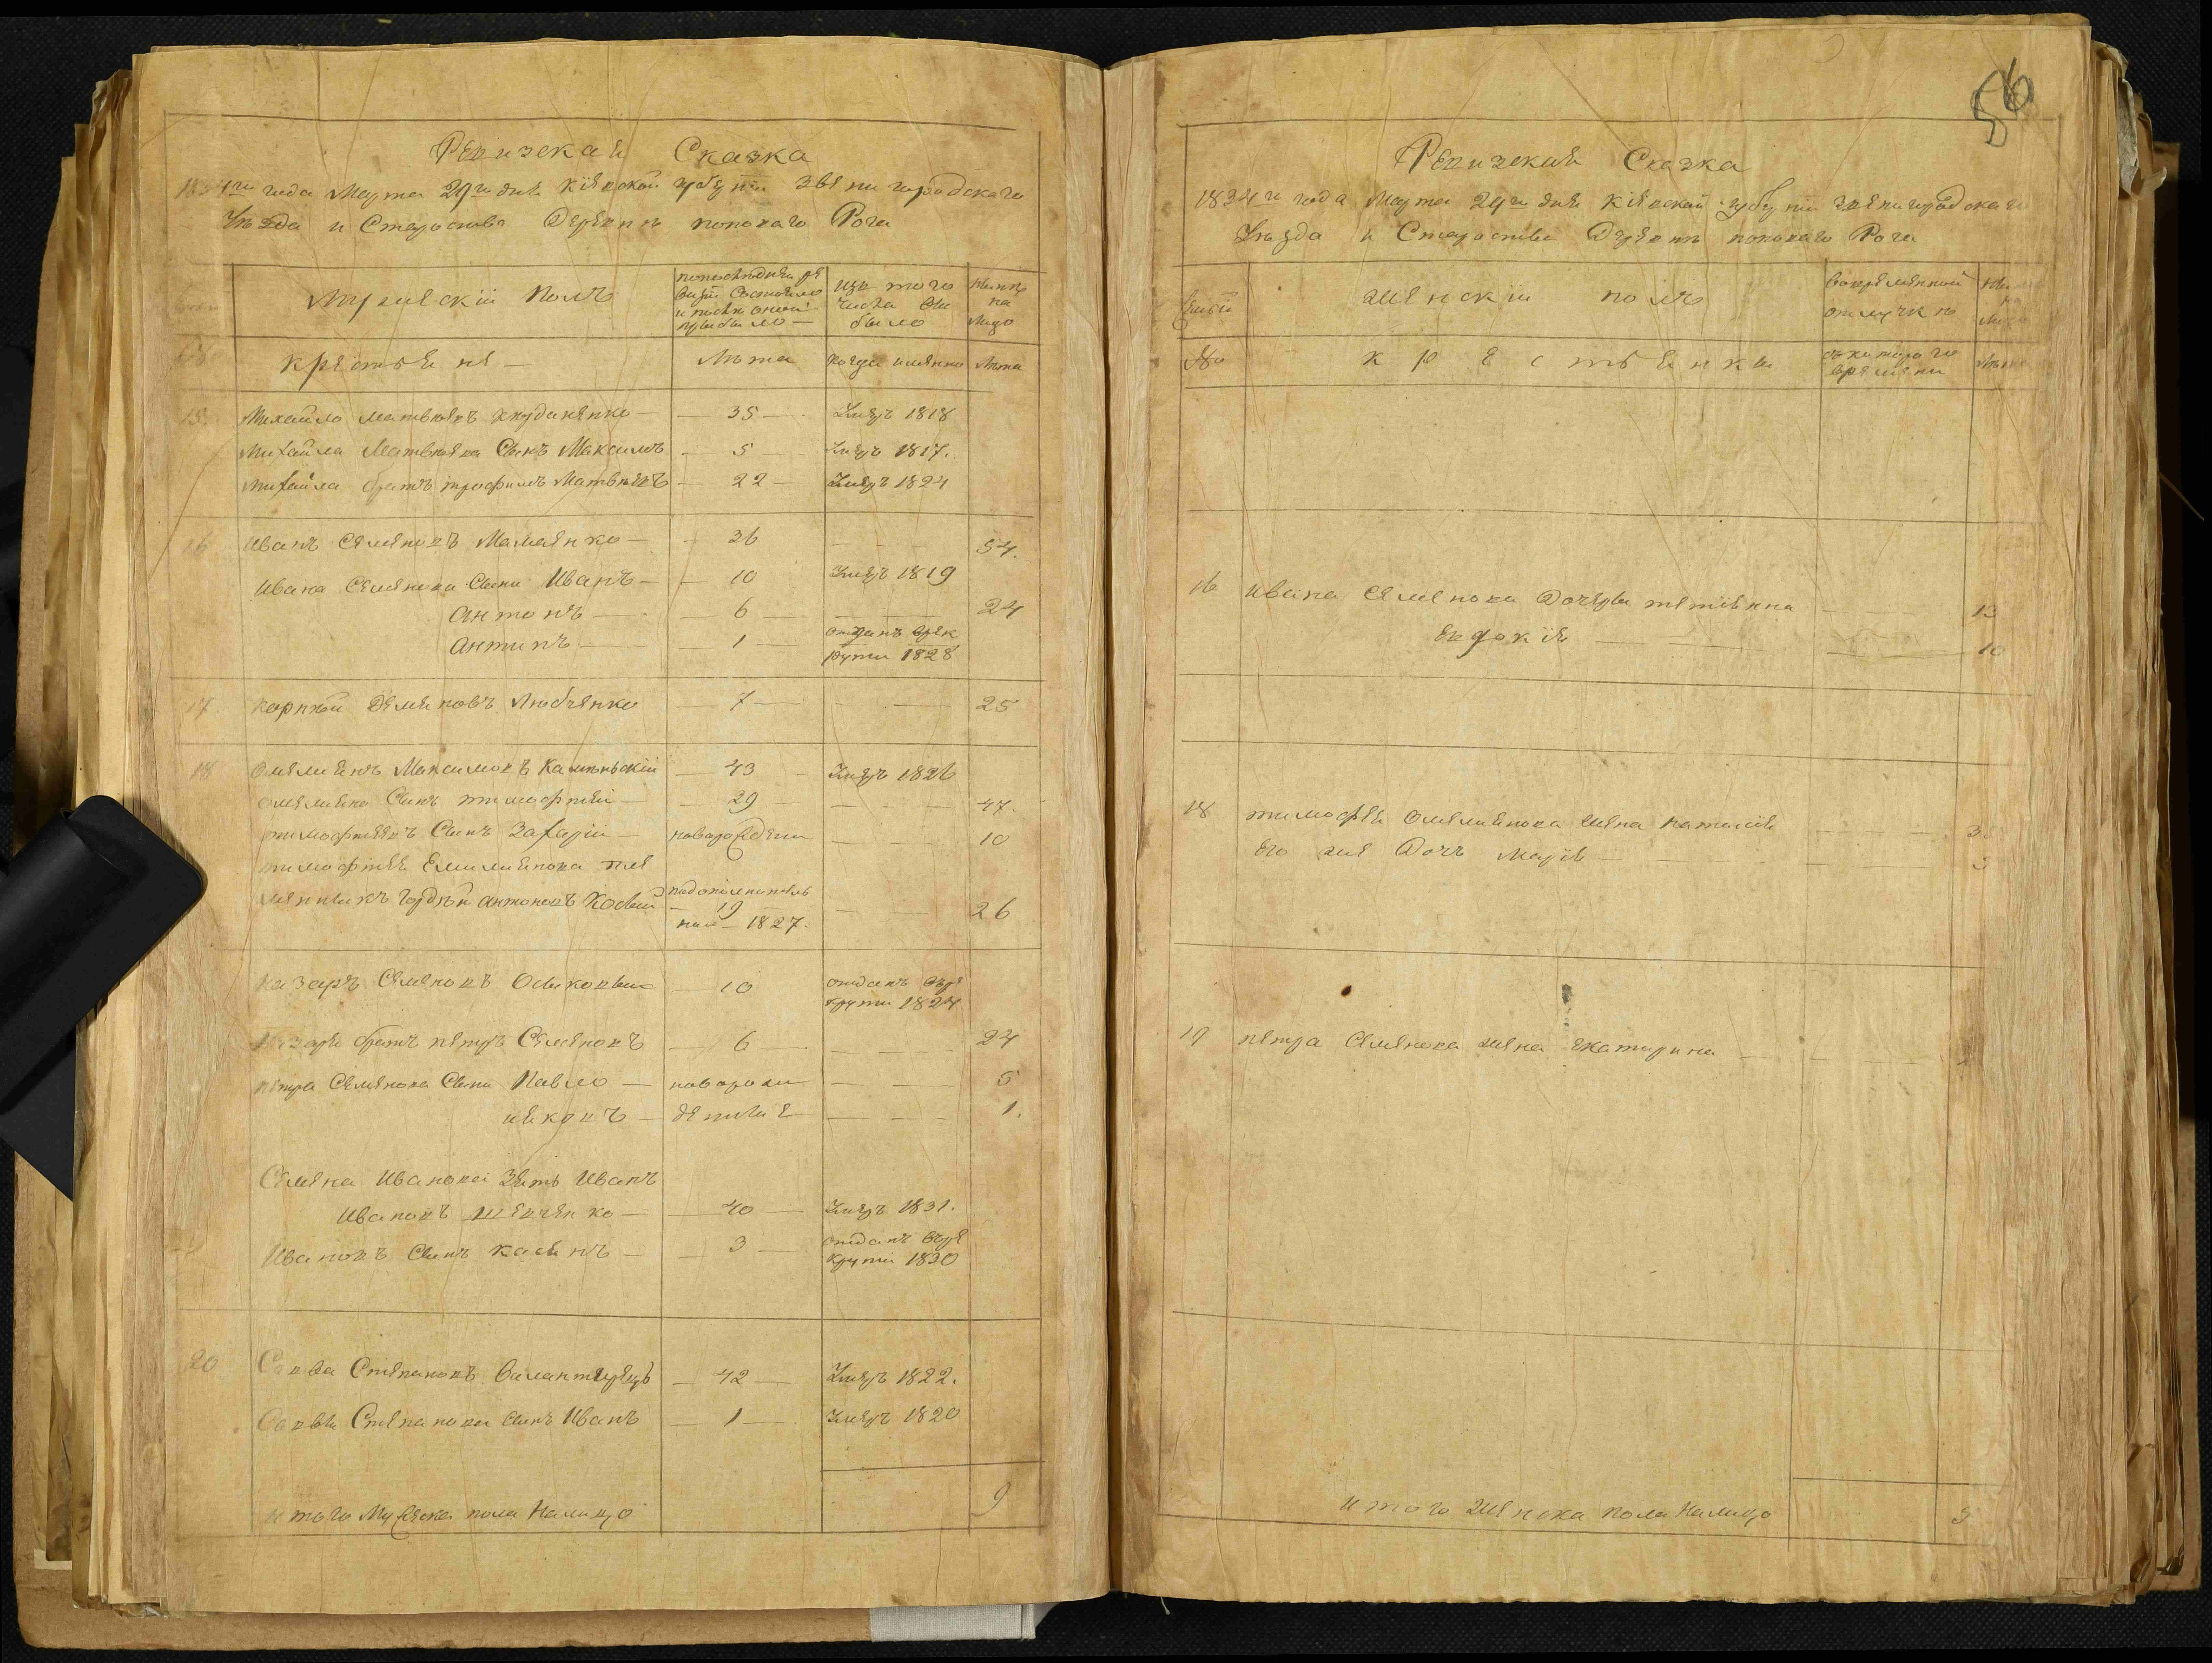 Ревизская Сказка
1834го года Марта 29го дня Кіевской губѣрніи Звенигородскаго
Уѣзда и Староства Деревнѣ поповаго Рога
Мужескій Полъ
попослѣдней ре
визіи Состояло
и послѣ оной
прибыло
Изъ того
числа вы
было
Нынѣ
на
Лицо
крестьяне
Лѣта
когда имянно
Лѣта
15. Михайло Матвѣевъ — 35 — Умеръ 1818
Михайла Матвѣева Сынъ Максимъ — 5 — Умеръ 1817.
Михайла братъ трофимъ Матвѣевъ — 22 — Умеръ 1824
16 Иванъ Семеновъ Мамаенко — 36 — — — 54.
Ивана Семенова Сыни Иванъ — 10 Умеръ 1819
Антонъ — 6 — — — 24
Антипъ — 1 — отданъ врек
рути 1828
17 корнѣй Демяновъ Любченко — 7 — — — 25
18 Омелиянъ Максимовъ Каминскій — 43 — Умеръ 1826
омеляна Сынъ тимофтей — 29 — — — 47.
тимофтеевъ Сынъ Захарій — новорожденн — — 10
тимофтея Емилиянова пле
менникъ Гордѣй антоновъ Косый
19
1827.
— — 26
Назаръ Семеновъ Осиковый — 10 отданъ врѣ
крути 1824
Назара братъ петръ Семеновъ — 6 — — — 24
петра Семенова Сыни Павло — новорож — — 5
яковъ — денные — — 1.
Семена Иванова Зять Иванъ
Ивановъ Шевченко — — 40 — Умеръ 1831.
Ивановъ Сынъ касянъ — — 3 — отданъ врѣ
крути 1830
20 Савва Степановъ — 42 — Умеръ 1822.
Саввы Степанова сынъ Иванъ — 1 — Умеръ 1820
итого Мужеска пола Налицо 9
56
Ревизская Сказка
1834го года Марта 29го дня Кіевской губѣрніи Звенигородскаго
Уѣзда и Староства Деревнѣ поповаго Рога
Семьи
Женскій полъ
вовременной
отлучкѣ
№
Крестьянки
съкотораго
времени
Лѣта
16 Ивана Семенова Дочеры тетіянна — 13
Евдокія — 10
18 тимофея Омеляянова жена наталія
Его же Дочъ Марія
19 петра Семенова жена Екатирина
итого Женска пола Налицо 5